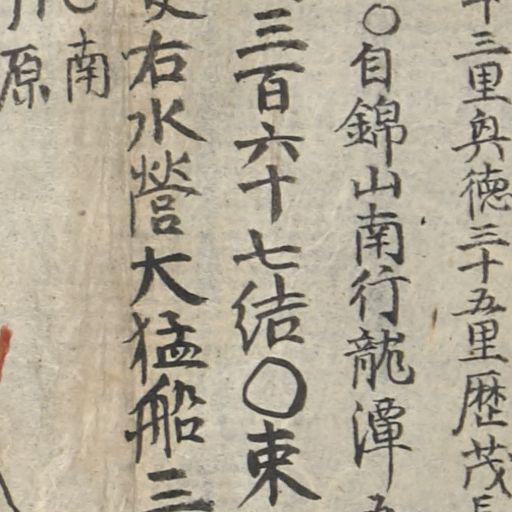 十三里與德三十五里歷茂長
○自錦山南行龍潭五
三百六十七結○束
右水營大猛船三
南
原